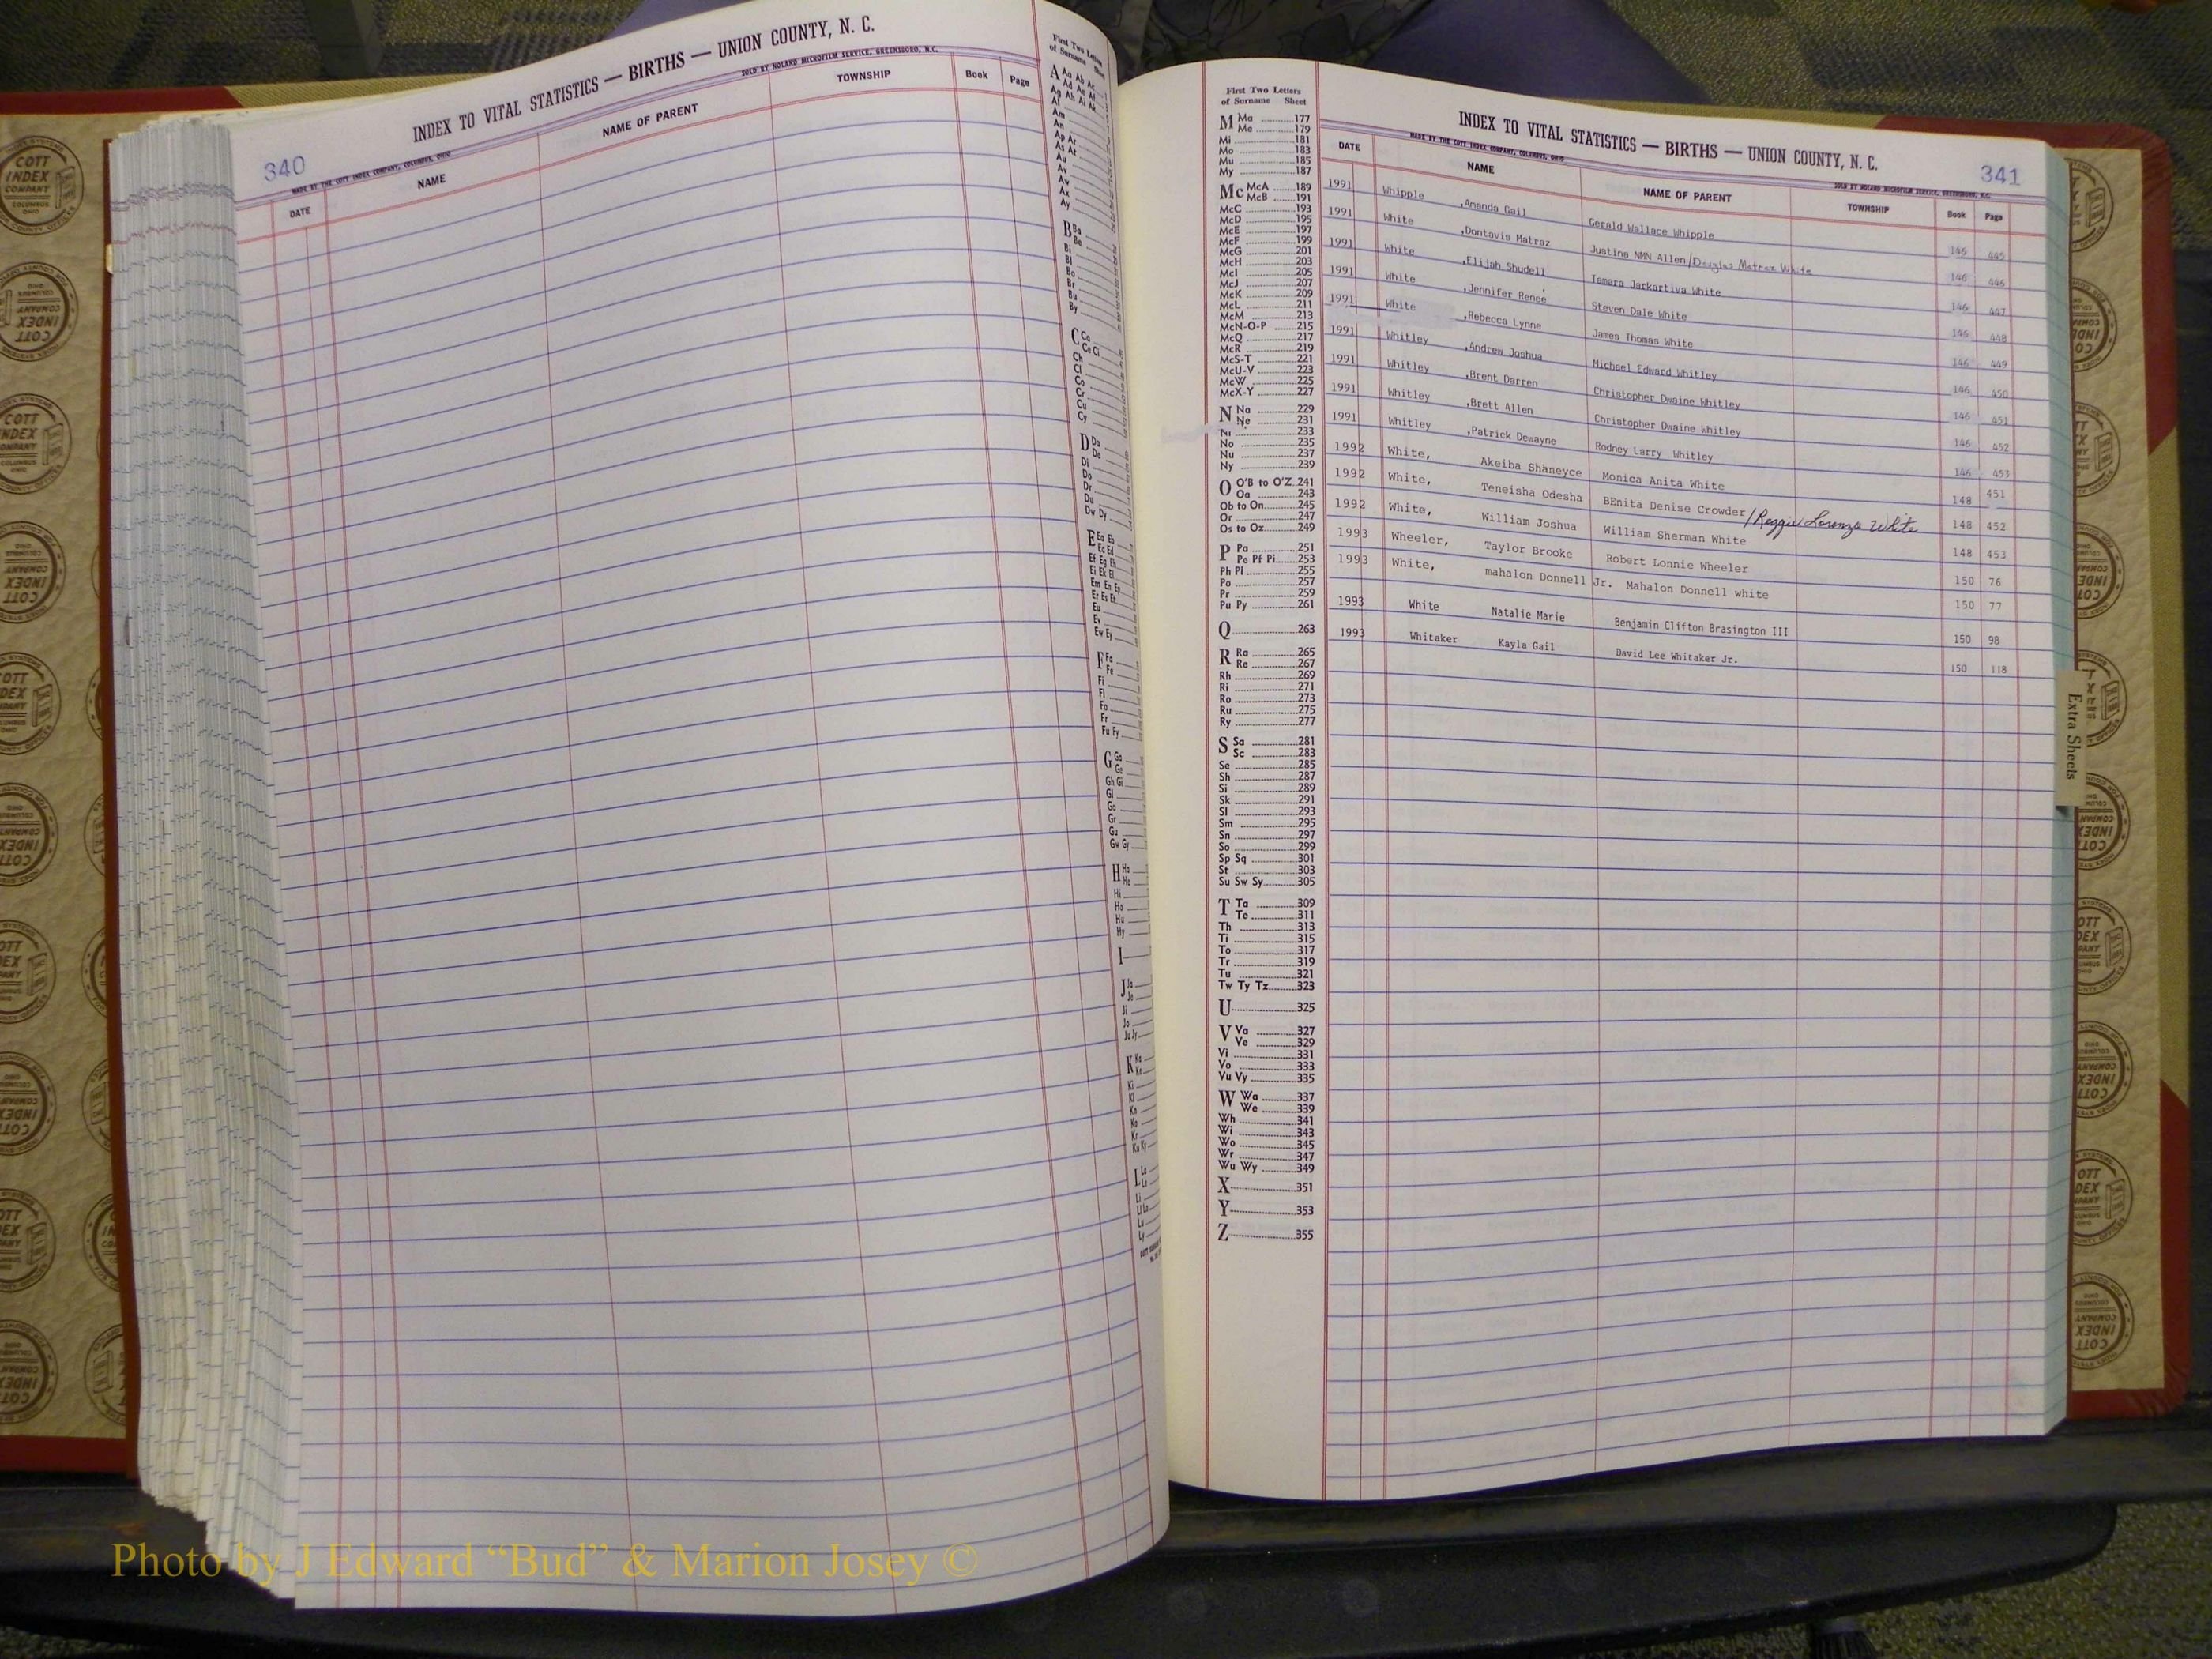 340
INDEX TO VITAL STATISTICS — BIRTHS — UNION COUNTY, N. C.
MADE BY THE COTT INDEX COMPANY, COLUMBUS, OHIO SOLD BY NOLAND MICROFILM SERVICE, GREENSBORO, N.C.
DATE NAME NAME OF PARENT TOWNSHIP Book Page
First Two Letters
of Surname Sheet
A Aa Ab Ac
Ad Ae Af
Ag Ah Ai Ak
Al
Am
An
Ap Ar
As At
Au
Av
Aw
Ax
Ay
B Ba
Be
Bi
Bl
Bo
Br
Bu
By
C Ca
Ce Ci
Ch
Cl
Co
Cr
Cu
Cy
D Da
De
Di
Do
Dr
Du
Dw Dy
E Ea Eb
Ec Ed
Ef Eg Eh
Ei Ek El
Em En Ep
Er Es Et
Eu
Ev
Ew Ey
F Fa
Fe
Fi
Fl
Fo
Fr
Fu Fy
G Ga
Ge
Gh Gi
Gl
Go
Gr
Gu
Gw Gy
H Ha
He
Hi
Ho
Hu
Hy
I
J Ja
Je
Ji
Jo
Ju Jy
K Ka
Ke
Ki
Kl
Kn
Ko
Kr
Ku Ky
L La
Le
Li
Ll Lo
Lu
Ly
First Two Letters
of Surname Sheet
M Ma 177
Me 179
Mi 181
Mo 183
Mu 185
My 187
Mc McA 189
McB 191
McC 193
McD 195
McE 197
McF 199
McG 201
McH 203
McI 205
McJ 207
McK 209
McL 211
McM 213
McN-O-P 215
McQ 217
McR 219
McS-T 221
McU-V 223
McW 225
McX-Y 227
N Na 229
Ne 231
Ni 233
No 235
Nu 237
Ny 239
O O'B to O'Z 241
Oa 243
Ob to On 245
Or 247
Os to Oz 249
P Pa 251
Pe Pf Pi 253
Ph Pl 255
Po 257
Pr 259
Pu Py 261
Q 263
R Ra 265
Re 267
Rh 269
Ri 271
Ro 273
Ru 275
Ry 277
S Sa 281
Sc 283
Se 285
Sh 287
Si 289
Sk 291
Sl 293
Sm 295
Sn 297
So 299
Sp Sq 301
St 303
Su Sw Sy 305
T Ta 309
Te 311
Th 313
Ti 315
To 317
Tr 319
Tu 321
Tw Ty Tz 323
U 325
V Va 327
Ve 329
Vi 331
Vo 333
Vu Vy 335
W Wa 337
We 339
Wh 341
Wi 343
Wo 345
Wr 347
Wu Wy 349
X 351
Y 353
Z 355
INDEX TO VITAL STATISTICS — BIRTHS — UNION COUNTY, N. C.
341
MADE BY THE COTT INDEX COMPANY, COLUMBUS, OHIO SOLD BY NOLAND MICROFILM SERVICE, GREENSBORO, N.C.
DATE NAME NAME OF PARENT TOWNSHIP Book Page
1991 Whipple ,Amanda Gail Gerald Wallace Whipple 146 445
1991 White ,Dontavis Matraz Justina NMN Allen/Douglas Matraz White 146 446
1991 White ,Elijah Shudell Tamara Jarkartiva White 146 447
1991 White ,Jennifer Renee Steven Dale White 146 448
1991 White ,Rebecca Lynne James Thomas White 146 449
1991 Whitley ,Andrew Joshua Michael Edward Whitley 146 450
1991 Whitley ,Brent Darren Christopher Dwaine Whitley 146 451
1991 Whitley ,Brett Allen Christopher Dwaine Whitley 146 452
1991 Whitley ,Patrick Dewayne Rodney Larry Whitley 146 453
1992 White, Akeiba Shaneyce Monica Anita White 148 451
1992 White, Teneisha Odesha BEnita Denise Crowder/Reggie Lorenzo White 148 452
1992 White, William Joshua William Sherman White 148 453
1993 Wheeler, Taylor Brooke Robert Lonnie Wheeler 150 76
1993 White, mahalon Donnell Jr. Mahalon Donnell white 150 77
1993 White Natalie Marie Benjamin Clifton Brasington III 150 98
1993 Whitaker Kayla Gail David Lee Whitaker Jr. 150 118
Extra Sheets
COTT INDEX COMPANY COLUMBUS OHIO
Photo by J Edward “Bud” & Marion Josey ©